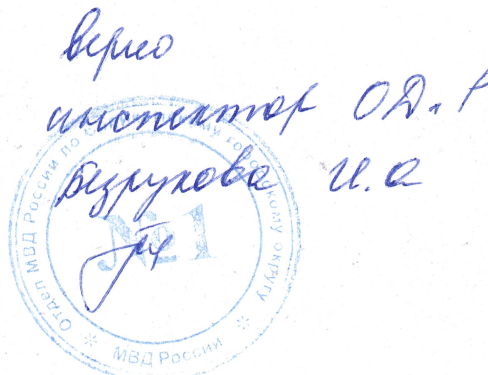 верно
инспектор ОД и Р
Безрукова И.А
№1
Отдел МВД России по городскому округу
МВД России